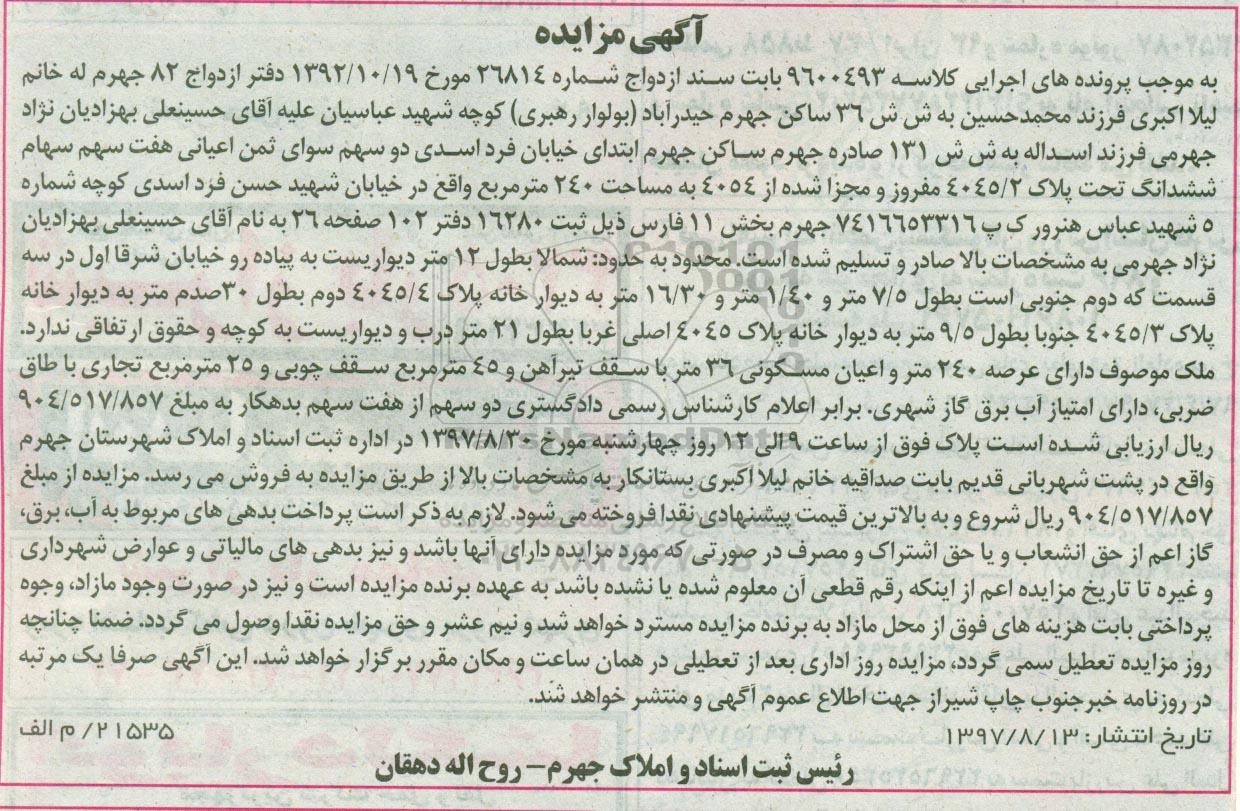 آگهی مزایده
به موجب پرونده های اجرایی کلاسه ۹۶۰۰۴۹۳ بابت سند ازدواج شماره ۲۶۸۱۴ مورخ ۱۳۹۲/۱۰/۱۹ دفتر ازدواج ۸۲ جهرم له خانم
لیلا اکبری فرزند محمدحسین به ش ش ۳۶ ساکن جهرم حیدرآباد (بولوار رهبری) کوچه شهید عباسیان علیه آقای حسینعلی بهزادیان نژاد
جهرمی فرزند اسداله به ش ش ۱۳۱ صادره جهرم ساکن جهرم ابتدای خیابان فرد اسدی دو سهم سوای ثمن اعیانی هفت سهم سهام
ششدانگ تحت پلاک ۴۰۴۵/۲ مفروز و مجزا شده از ۴۰۵۴ به مساحت ۲۴۰ مترمربع واقع در خیابان شهید حسن فرد اسدی کوچه شماره
۵ شهید عباس هنرور ک پ ۷۴۱۶۶۵۳۳۱۶ جهرم بخش ۱۱ فارس ذیل ثبت ۱۶۲۸۰ دفتر ۱۰۲ صفحه ۲۶ به نام آقای حسینعلی بهزادیان
نژاد جهرمی به مشخصات بالا صادر و تسلیم شده است. محدود به حدود: شمالا بطول ۱۲ متر دیواریست به پیاده رو خیابان شرقا اول در سه
قسمت که دوم جنوبی است بطول ۷/۵ متر و ۱/۴۰ متر و ۱۶/۳۰ متر به دیوار خانه پلاک ۴۰۴۵/۴ دوم بطول ۳۰صدم متر به دیوار خانه
پلاک ۴۰۴۵/۳ جنوبا بطول ۹/۵ متر به دیوار خانه پلاک ۴۰۴۵ اصلی غربا بطول ۲۱ متر درب و دیواریست به کوچه و حقوق ارتفاقی ندارد.
ملک موصوف دارای عرصه ۲۴۰ متر و اعیان مسکونی ۳۶ متر با سقف تیرآهن و ۴۵ مترمربع سقف چوبی و ۲۵ مترمربع تجاری با طاق
ضربی، دارای امتیاز آب برق گاز شهری. برابر اعلام کارشناس رسمی دادگستری دو سهم از هفت سهم بدهکار به مبلغ ۹۰۴/۵۱۷/۸۵۷
ریال ارزیابی شده است پلاک فوق از ساعت ۹ الی ۱۲ روز چهارشنبه مورخ ۱۳۹۷/۸/۳۰ در اداره ثبت اسناد و املاک شهرستان جهرم
واقع در پشت شهربانی قدیم بابت صداقیه خانم لیلا اکبری بستانکار به مشخصات بالا از طریق مزایده به فروش می رسد. مزایده از مبلغ
۹۰۴/۵۱۷/۸۵۷ ریال شروع و به بالاترین قیمت پیشنهادی نقدا فروخته می شود. لازم به ذکر است پرداخت بدهی های مربوط به آب، برق،
گاز اعم از حق انشعاب و یا حق اشتراک و مصرف در صورتی که مورد مزایده دارای آنها باشد و نیز بدهی های مالیاتی و عوارض شهرداری
و غیره تا تاریخ مزایده اعم از اینکه رقم قطعی آن معلوم شده یا نشده باشد به عهده برنده مزایده است و نیز در صورت وجود مازاد، وجوه
پرداختی بابت هزینه های فوق از محل مازاد به برنده مزایده مسترد خواهد شد و نیم عشر و حق مزایده نقدا وصول می گردد. ضمنا چنانچه
روز مزایده تعطیل سمی گردد، مزایده روز اداری بعد از تعطیلی در همان ساعت و مکان مقرر برگزار خواهد شد. این آگهی صرفا یک مرتبه
در روزنامه خبرجنوب چاپ شیراز جهت اطلاع عموم آگهی و منتشر خواهد شد.
تاریخ انتشار: ۱۳۹۷/۸/۱۳ ۲۱۵۳۵/ م الف
رئیس ثبت اسناد و املاک جهرم – روح اله دهقان